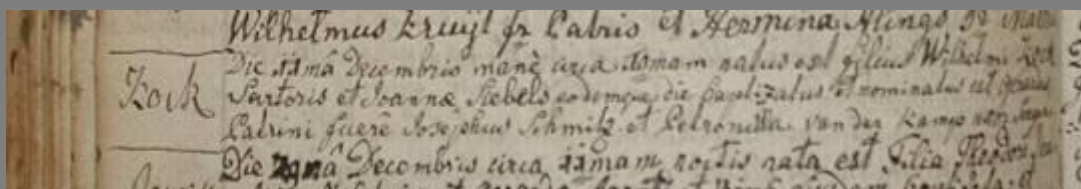 Wilhelmus Kruijl fr Patris et Hermina Alings
Kock
Die 11mâ Decembris manè circa 10mam natus est filius Wilhelmi Kock
Sartoris et Joannæ Siebels eodemque die baptizatus et nominatus est
Patrini fuere Josephus Schmitz et Petronilla van der Kamp
Die Decembris circa 11mam noctis nata est Filia Theodori